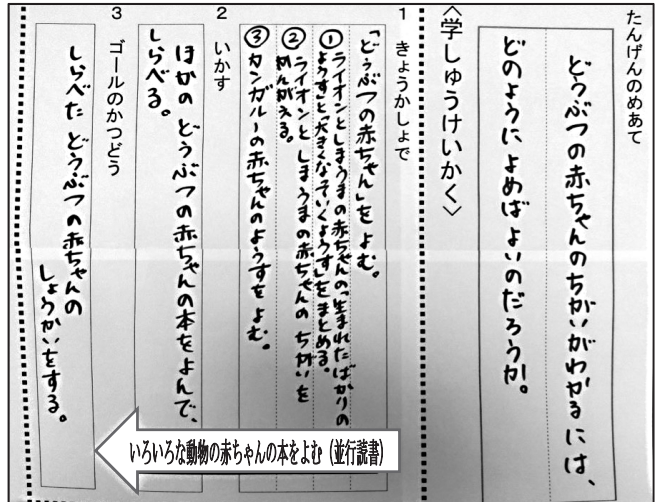 たんげんのめあて
どうぶつの赤ちゃんのちがいがわかるには、
どのようによめばよいのだろうか。
〈学しゅうけいかく〉
1 きょうかしょで
「どうぶつの赤ちゃん」をよむ。
①ライオンとしまうまの赤ちゃんの「生まれたばかりの
ようすと「大きくなっていくようす」をまとめる。
②ライオンと しまうまの赤ちゃんの ちがいを
かんがえる。
③カンガルーの赤ちゃんのようすをよむ。
2 いかす
ほかの どうぶつの赤ちゃんの本をよんで、
しらべる。
3 ゴールのかつどう
しらべた どうぶつの赤ちゃんの
しょうかいをする。
いろいろな動物の赤ちゃんの本をよむ（並行読書）